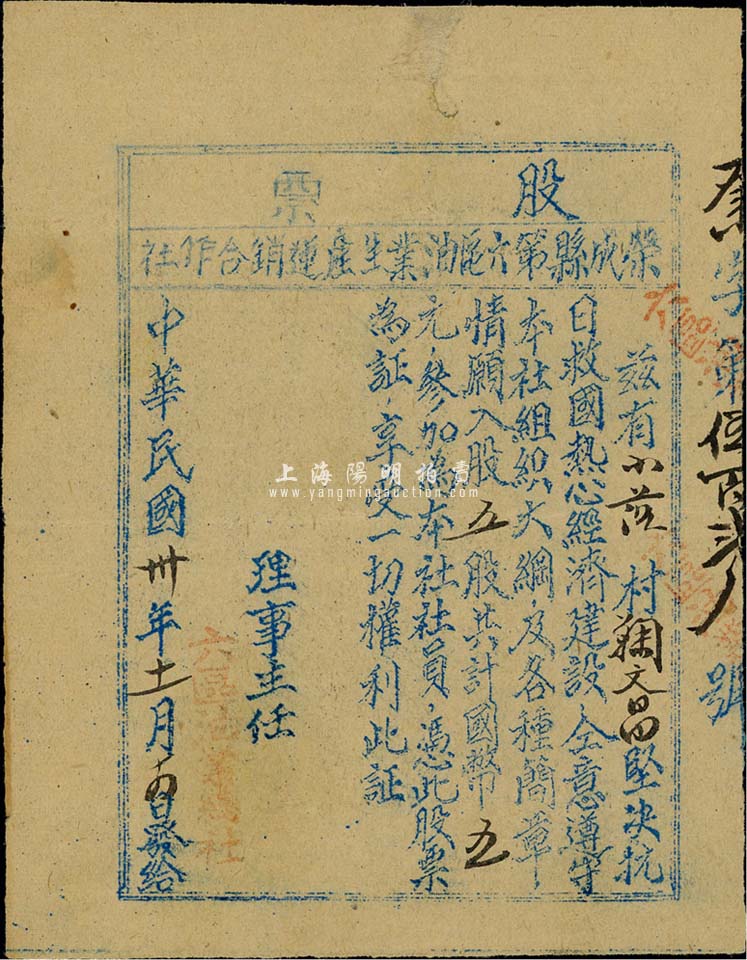 股票
榮成縣第六區油業生產運銷合作社
茲有小茳村 文昌堅决抗
日救國熱心經濟建設,全意遵守
本社組織大綱,及各種簡章,
情願入股五股共計國幣五
元,參加為本社社員,憑此股票
為証,享受一切權利此証
理事主任
中華民國卅年十一月 日發給
字第伍百 號
六區油業 社
上海陽明拍賣
www.yangmingauction.com